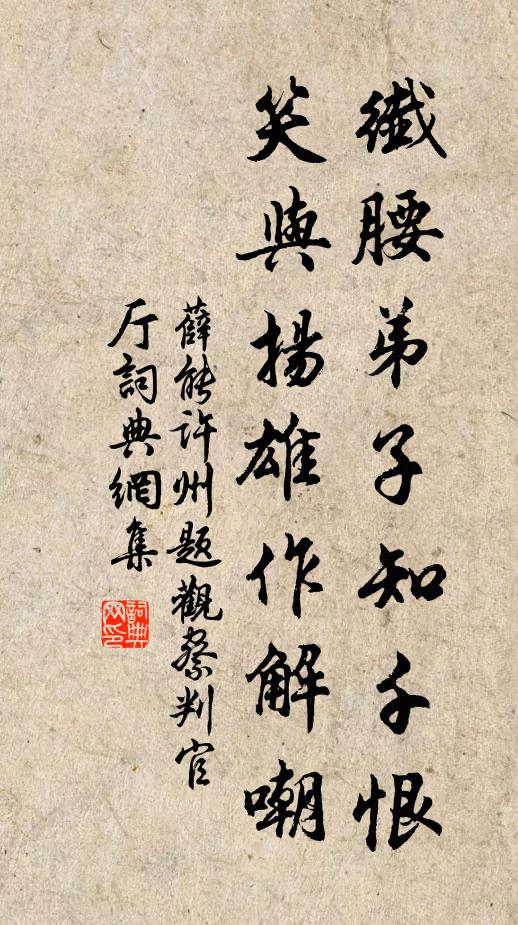 纖腰弟子知千恨
笑與揚雄作解嘲
薛能许州题觀察判官
厅詞典網集
詞典网印